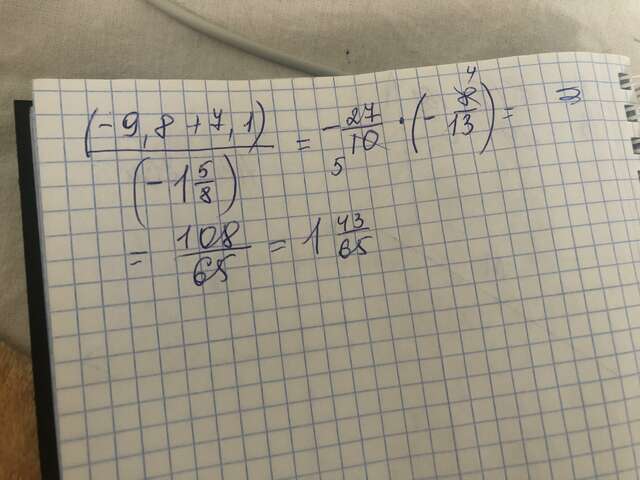 (-9,8+7,1) / (-1 5/8) = -27/10 5 · (-8/13) 4 =
= 108/65 = 1 43/65